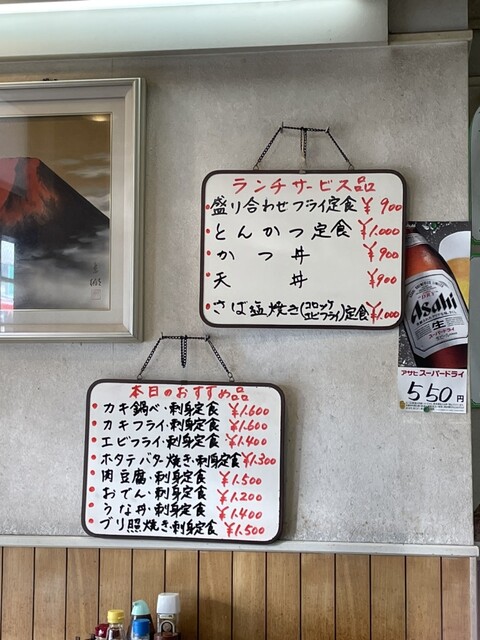 ランチサービス品
盛り合わせフライ定食 ¥900
とんかつ定食 ¥1.000
かつ丼 ¥900
天丼 ¥900
さば塩焼き(コロッケ エビフライ)定食 ¥1.000
Asahi
生
スーパードライ
アサヒスーパードライ
550円
本日のおすすめ品
カキ鍋・刺身定食 ¥1.600
カキフライ・刺身定食 ¥1.600
エビフライ・刺身定食 ¥1.400
ホタテバター焼き・刺身定食 ¥1.300
肉豆腐・刺身定食 ¥1.500
おでん・刺身定食 ¥1.200
うな丼・刺身定食 ¥1.400
ブリ照焼き・刺身定食 ¥1.500